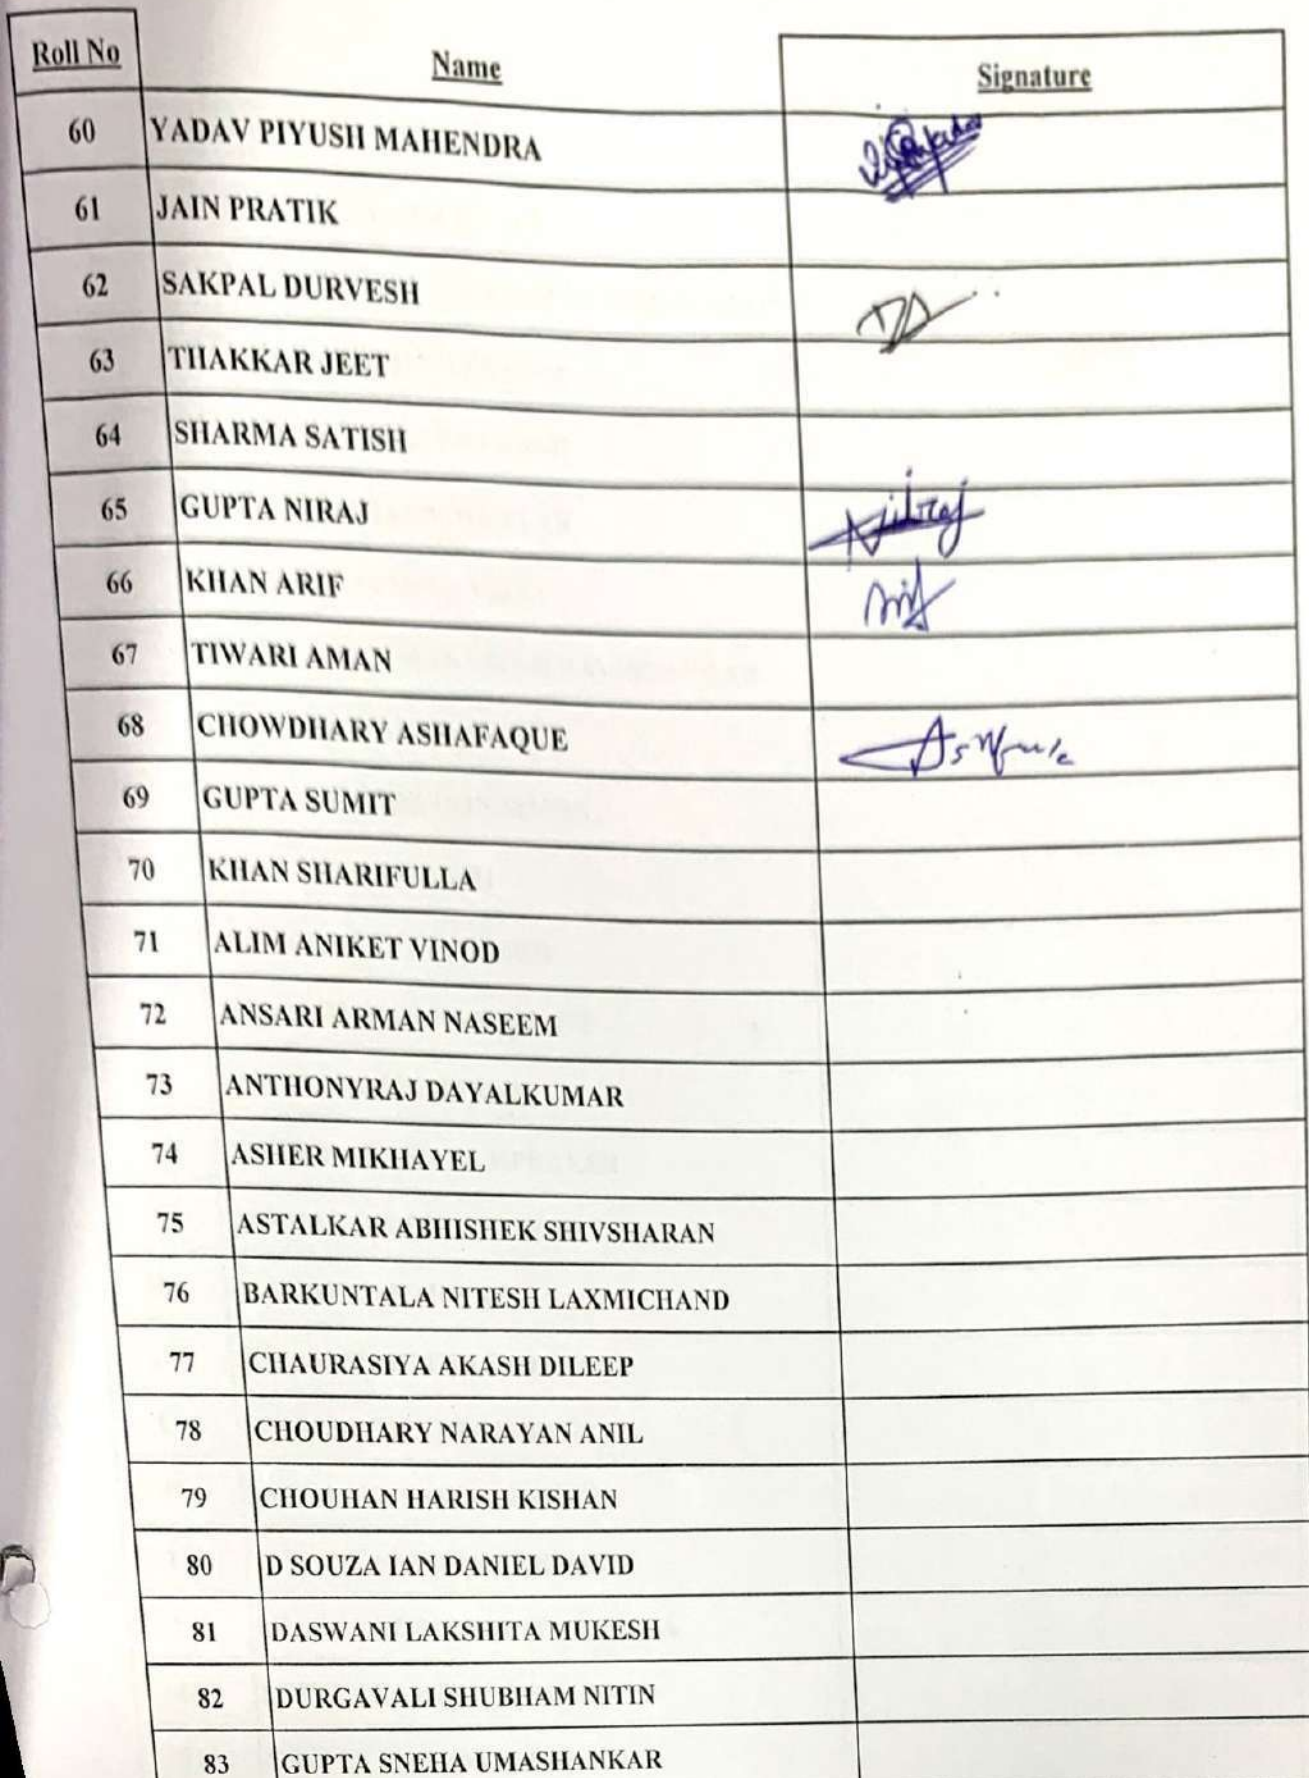 Roll No Name Signature
60 YADAV PIYUSH MAHENDRA
61 JAIN PRATIK
62 SAKPAL DURVESH
63 THAKKAR JEET
64 SHARMA SATISH
65 GUPTA NIRAJ
66 KHAN ARIF
67 TIWARI AMAN
68 CHOWDHARY ASHAFAQUE
69 GUPTA SUMIT
70 KHAN SHARIFULLA
71 ALIM ANIKET VINOD
72 ANSARI ARMAN NASEEM
73 ANTHONYRAJ DAYALKUMAR
74 ASHER MIKHAYEL
75 ASTALKAR ABHISHEK SHIVSHARAN
76 BARKUNTALA NITESH LAXMICHAND
77 CHAURASIYA AKASH DILEEP
78 CHOUDHARY NARAYAN ANIL
79 CHOUHAN HARISH KISHAN
80 D SOUZA IAN DANIEL DAVID
81 DASWANI LAKSHITA MUKESH
82 DURGAVALI SHUBHAM NITIN
83 GUPTA SNEHA UMASHANKAR